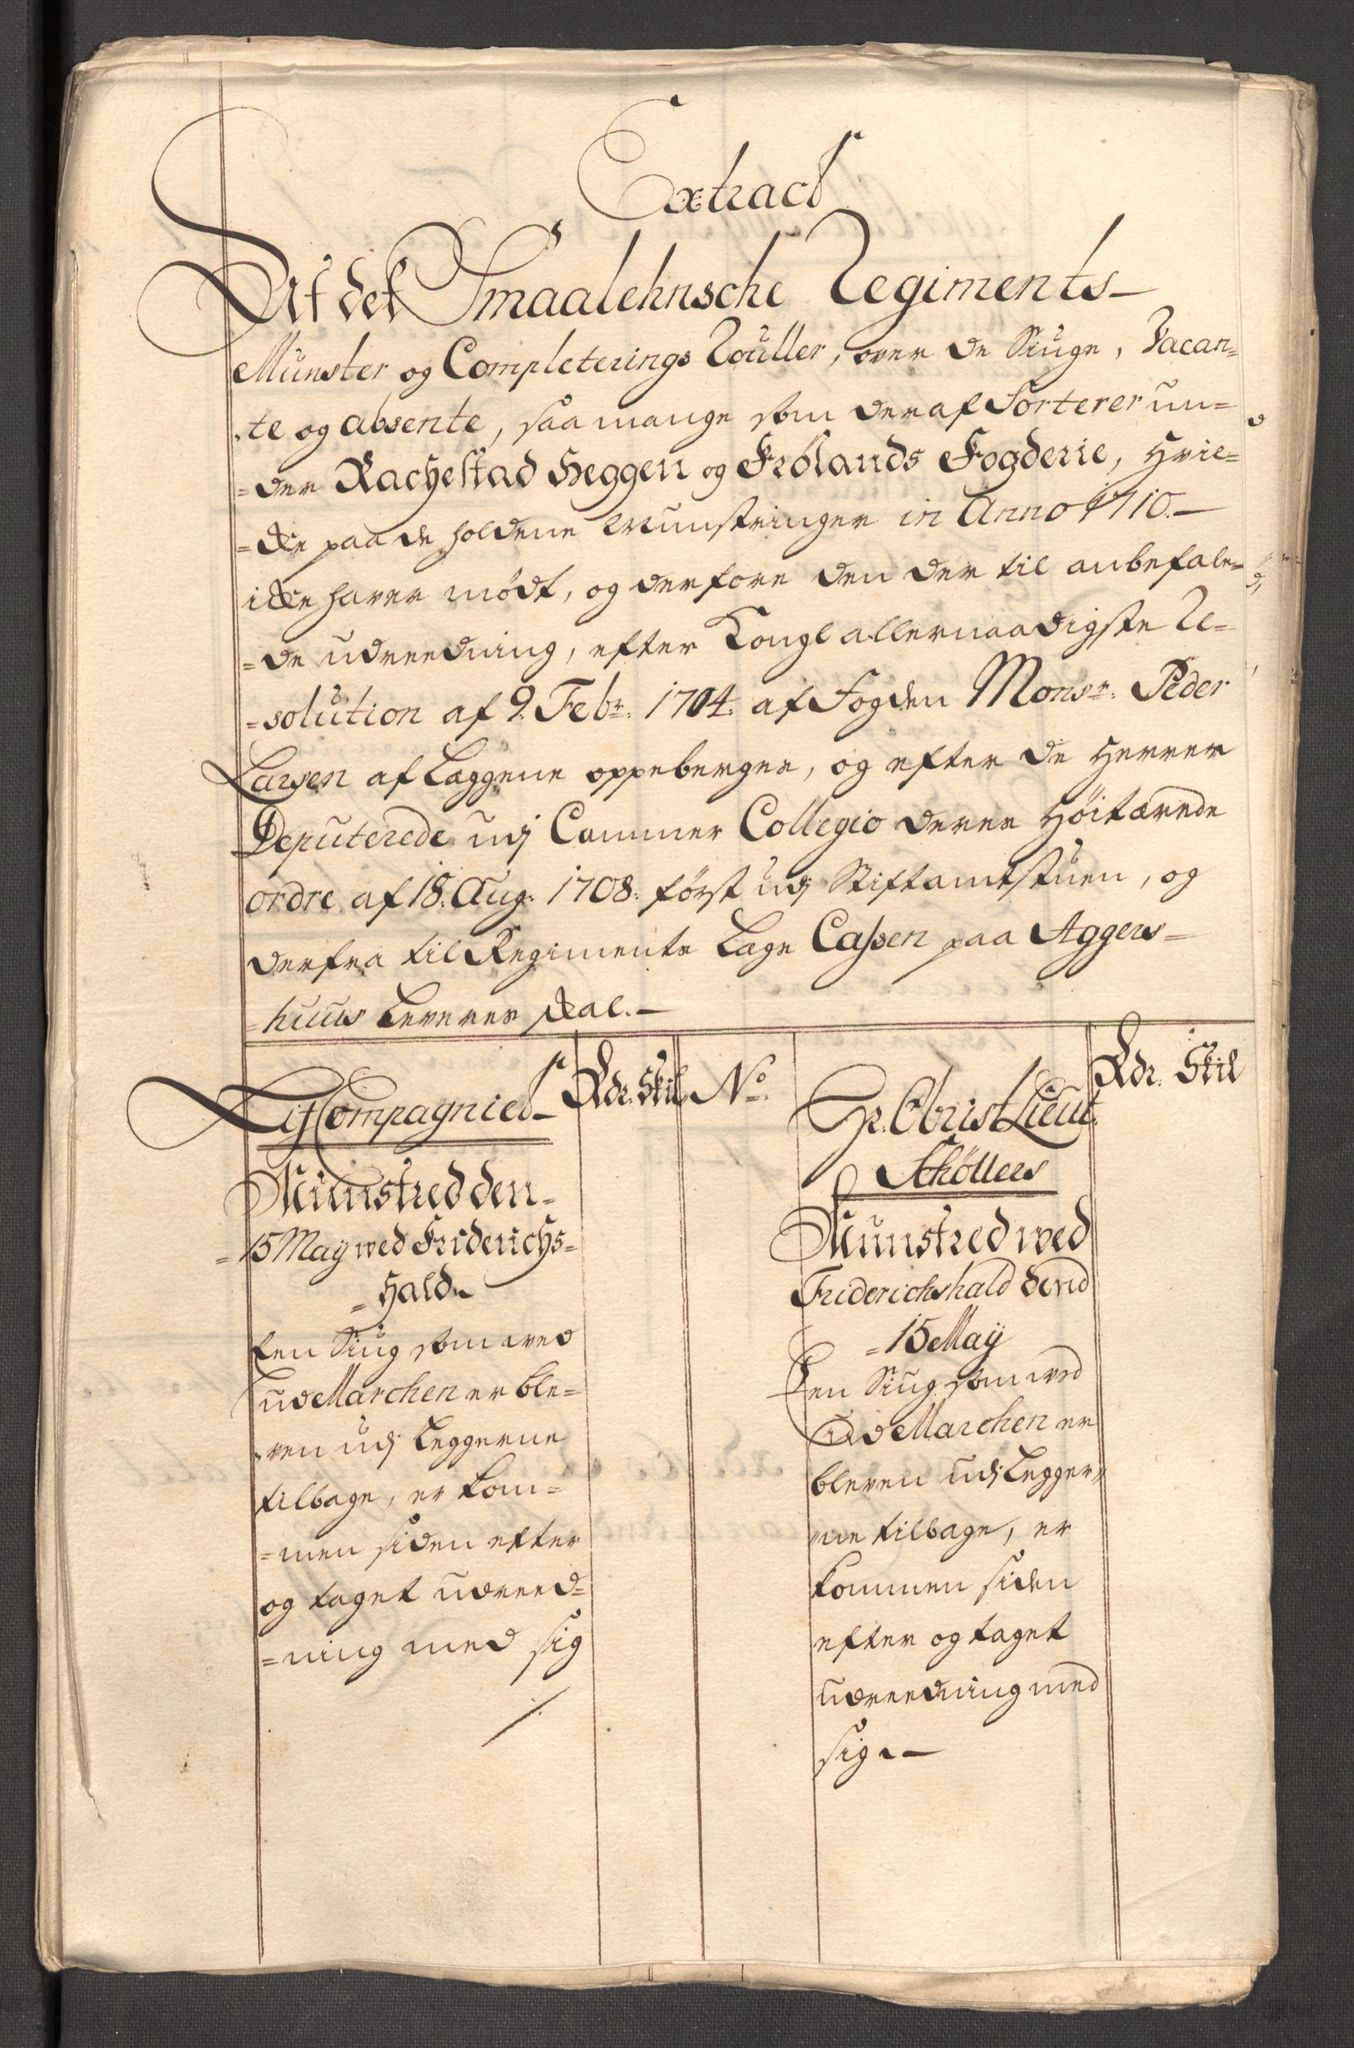 Extract
Af det Smaalehnsche Regiments
Munster og Completerings Rouller, over de Siuge, Vacan-
te og absente, saa mange som deraf Sorterer un-
der Rachestad Heggen og Frölands Fogderie, hvil-
cke paa de holdene Munstringer in Anno 1710.
icke haver mødt, og derfore den der til anbefale-
de udreedning, efter Kongl allernaadigste Re-
solution af 9. Febr: 1704. af Fogden Monsr. Peder
Larsen af Læggene oppeberger, og efter de Herrer
Deputerede udj Cammer Collegio deres Høitærede
ordre af 18. Aug: 1708. først udj Stiftamtstuen, og
derfra til Regimente Lage Cassen paa Aggers-
huus Leveres skal.
Lif Compagniet
Rdr. Skil
No.
Hr. Obrist Lieut.
Schøllers
Rdr. Skil
Munstred den
15 May wed Friderichs-
hald
Een Siug som wed
ud Marchen er ble-
ven udj Leggerne
tilbage, er kom-
men siden efter
og taget udreed-
ning med sig
Munstred wed
Friderichshald dend
15 May
Een Siug som wed
Ud Marchen er
bleven udj Legger-
ne tilbage, er
kommen siden
efter og taget
udreedning med
sig.